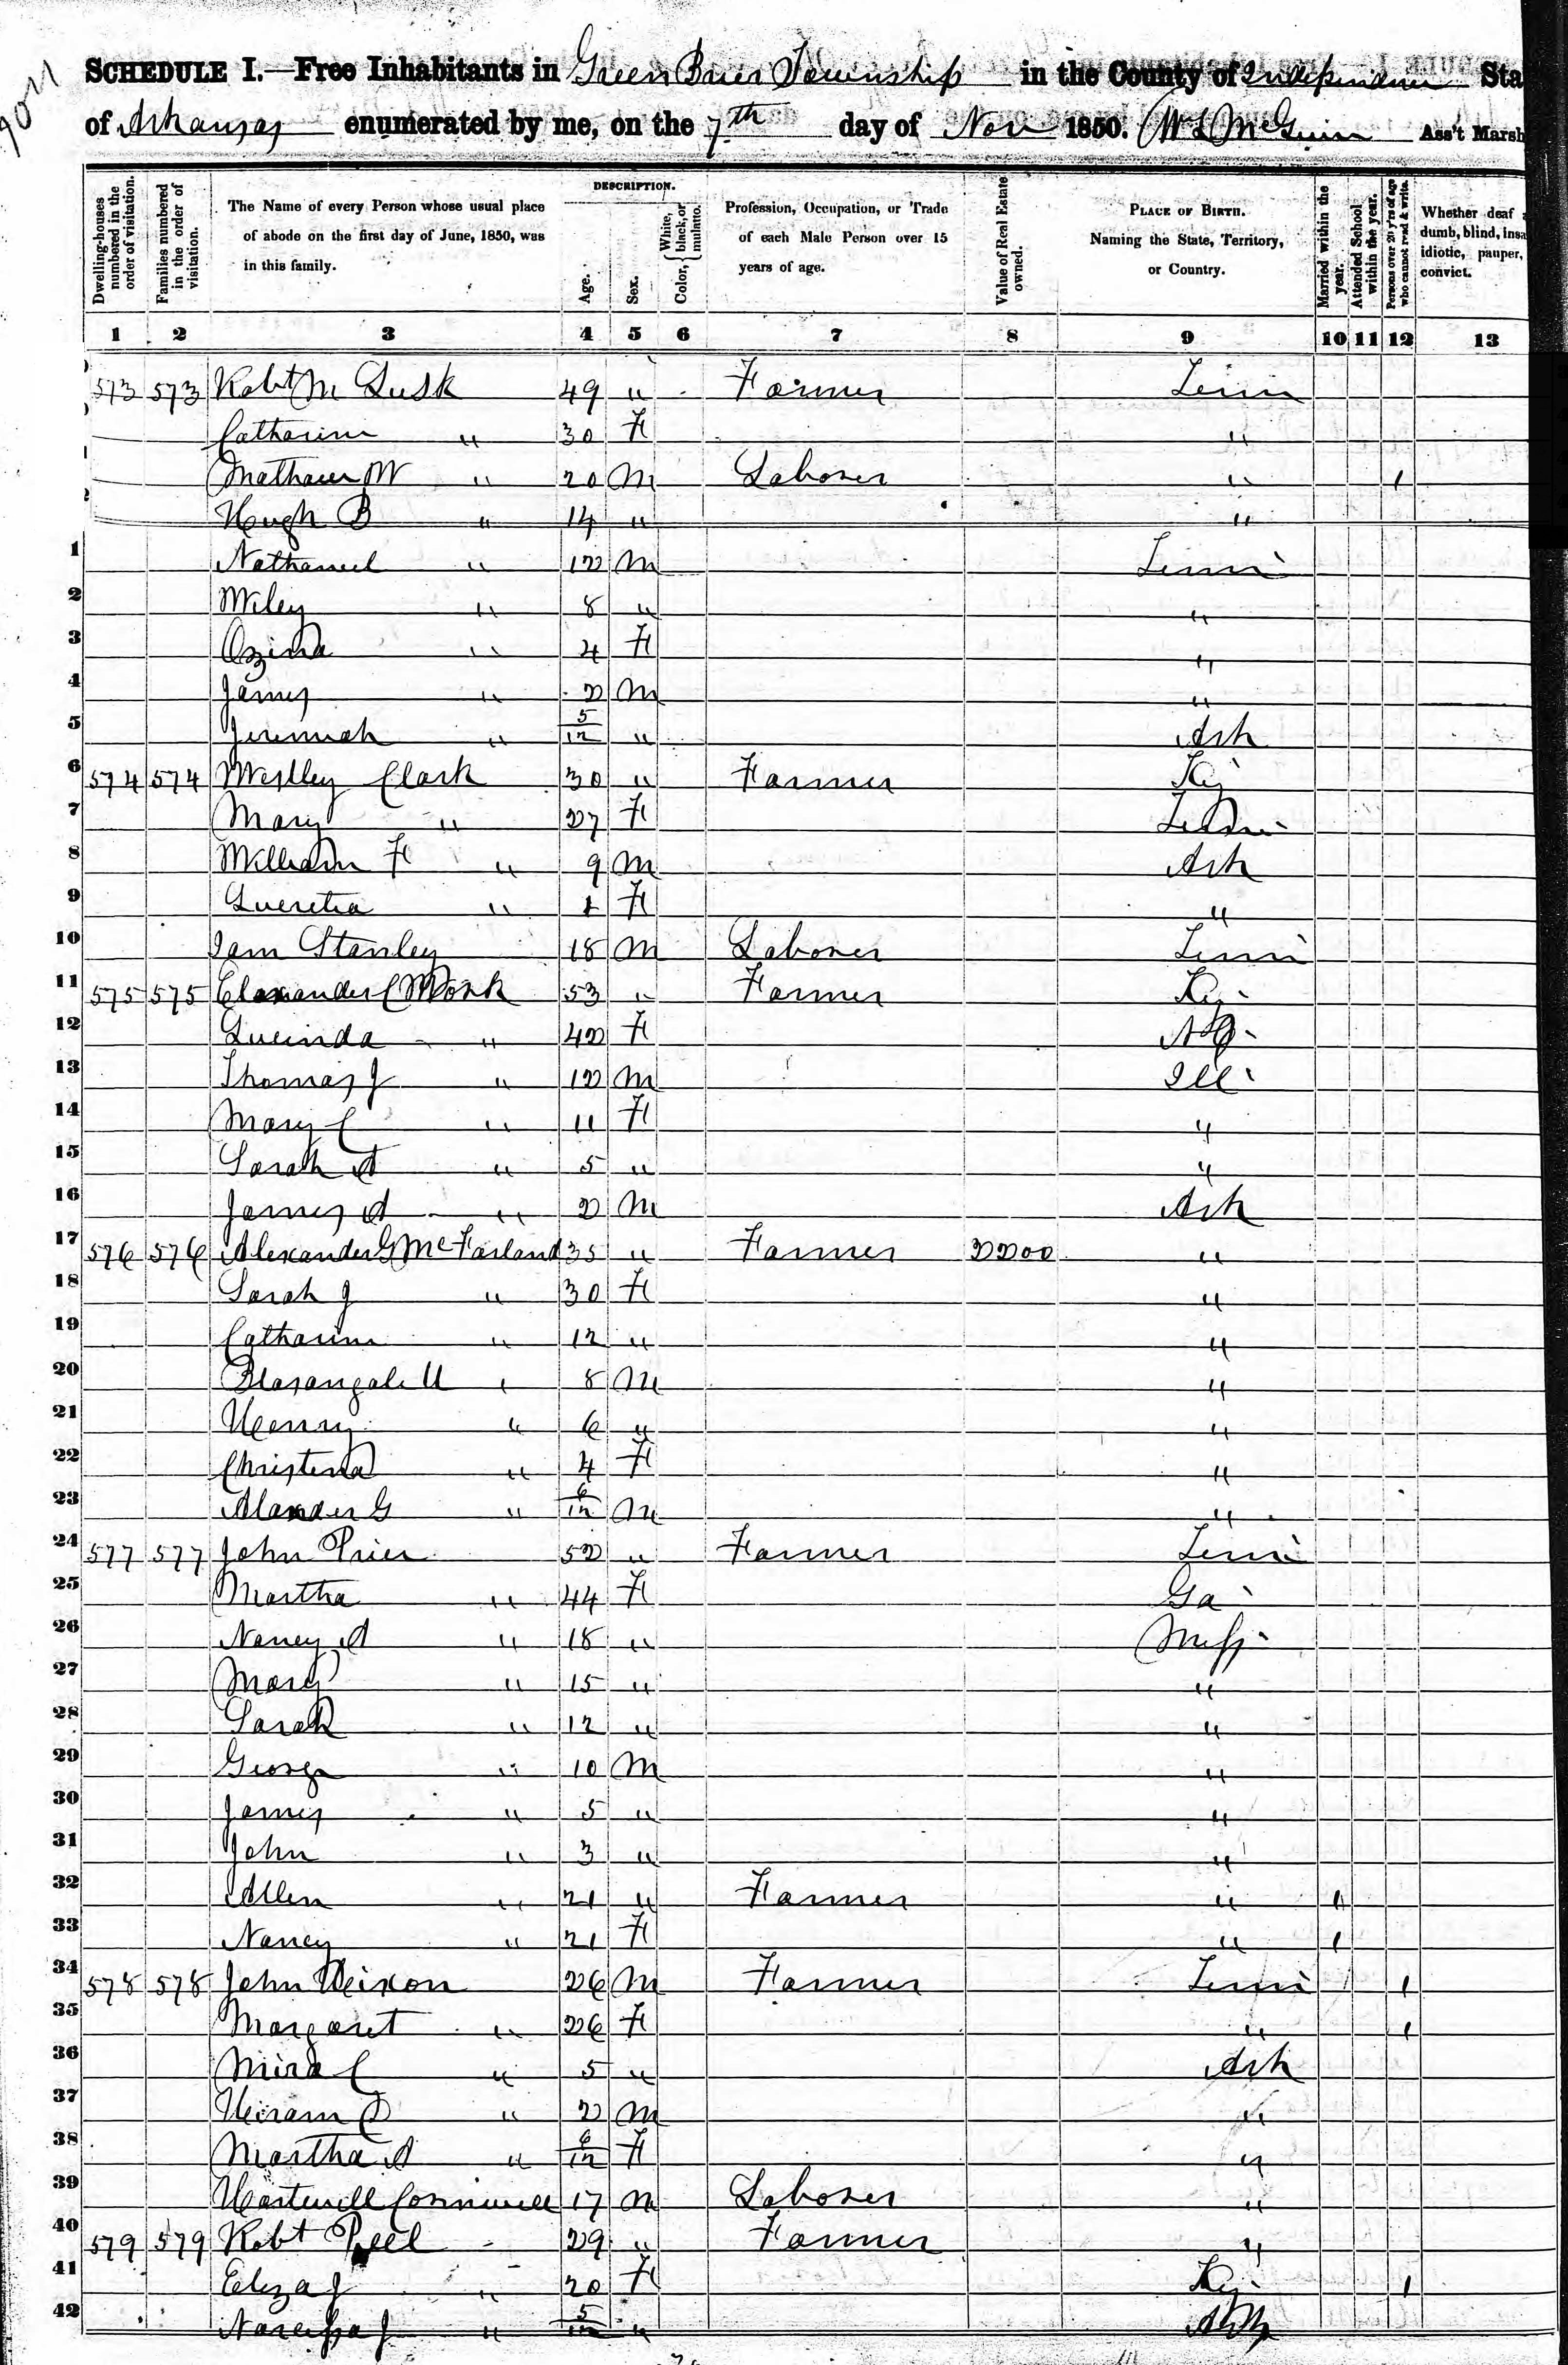 SCHEDULE I.—Free Inhabitants in Green Brier Township in the County of Independence Sta
of Arkansas enumerated by me, on the 7th day of Nov 1850. Ass't Marsh
Dwelling-houses numbered in the order of visitation.
Families numbered in the order of visitation.
The Name of every Person whose usual place of abode on the first day of June, 1850, was in this family.
DESCRIPTION.
Age.
Sex.
Color, { White, black, or mulatto.
Profession, Occupation, or Trade of each Male Person over 15 years of age.
Value of Real Estate owned.
PLACE OF BIRTH. Naming the State, Territory, or Country.
Married within the year.
Attended School within the year.
Persons over 20 y'rs of age who cannot read & write.
Whether deaf dumb, blind, insa idiotic, pauper, convict.
1 2 3 4 5 6 7 8 9 10 11 12 13
573 573 Robt M Lusk 49 " Farmer Tenn
Catharine " 30 F "
W " 20 M Laborer " 1
Hugh B " 14 " "
1 Nathaniel " 12 M Tenn
2 Wiley " 8 " "
3 " 4 F "
4 James " 2 M "
5 Jeremiah " 5/12 " Ark
6 574 574 Westley Clark 30 " Farmer Ky
7 Mary " 27 F Tenn
8 William F " 9 M Ark
9 Lucretia " 1 F "
10 Stanley 18 M Laborer Tenn
11 575 575 53 " Farmer Ky
12 Lucinda " 42 F NC
13 Thomas J " 12 M Ill
14 Mary C " 11 F "
15 Sarah A " 5 " "
16 James A " 2 M Ark
17 576 576 Alexander G McFarland 35 " Farmer 2200 "
18 Sarah J " 30 F "
19 Catharine " 12 " "
20 " 8 M "
21 Henry " 6 " "
22 Christena " 4 F "
23 Alexander G " 6/12 M "
24 577 577 John Prier 52 " Farmer Tenn
25 Martha " 44 F Ga
26 Nancy A " 18 " Miss
27 Mary " 15 " "
28 Sarah " 12 " "
29 George " 10 M "
30 James " 5 " "
31 John " 3 " "
32 Allen " 21 " Farmer " 1
33 Nancy " 21 F " 1
34 578 578 John Heixon 26 M Farmer Tenn 1
35 Margaret " 26 F " 1
36 Mira C " 5 " Ark
37 Hiram D " 2 M "
38 Martha A " 6/12 F "
39 Hartwell Cornwell 17 M Laborer "
40 579 579 Robt Peel 29 " Farmer "
41 Eliza J " 20 F Ky 1
42 Narcissa J " 5/12 " Ark